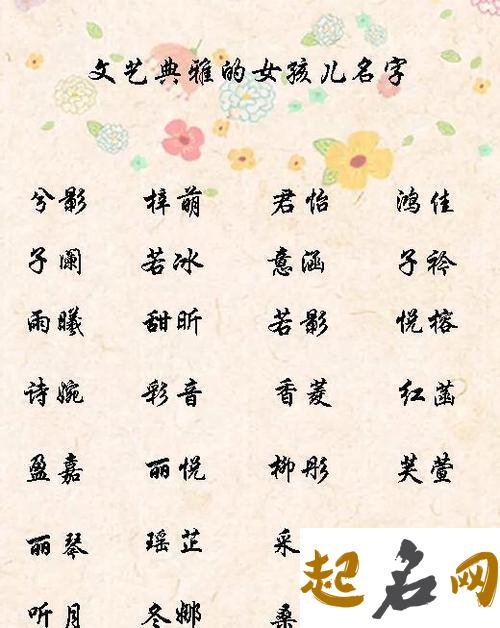 文艺典雅的女孩儿名字
兮影 梓萌 君怡 鸿佳
子阑 若冰 意涵 子衿
雨曦 甜昕 若影 悦榕
诗婉 彩音 香菱 红菡
盈嘉 丽悦 柳彤 芙萱
丽琴 瑶芷 采
听月 冬娜 桑
起名网